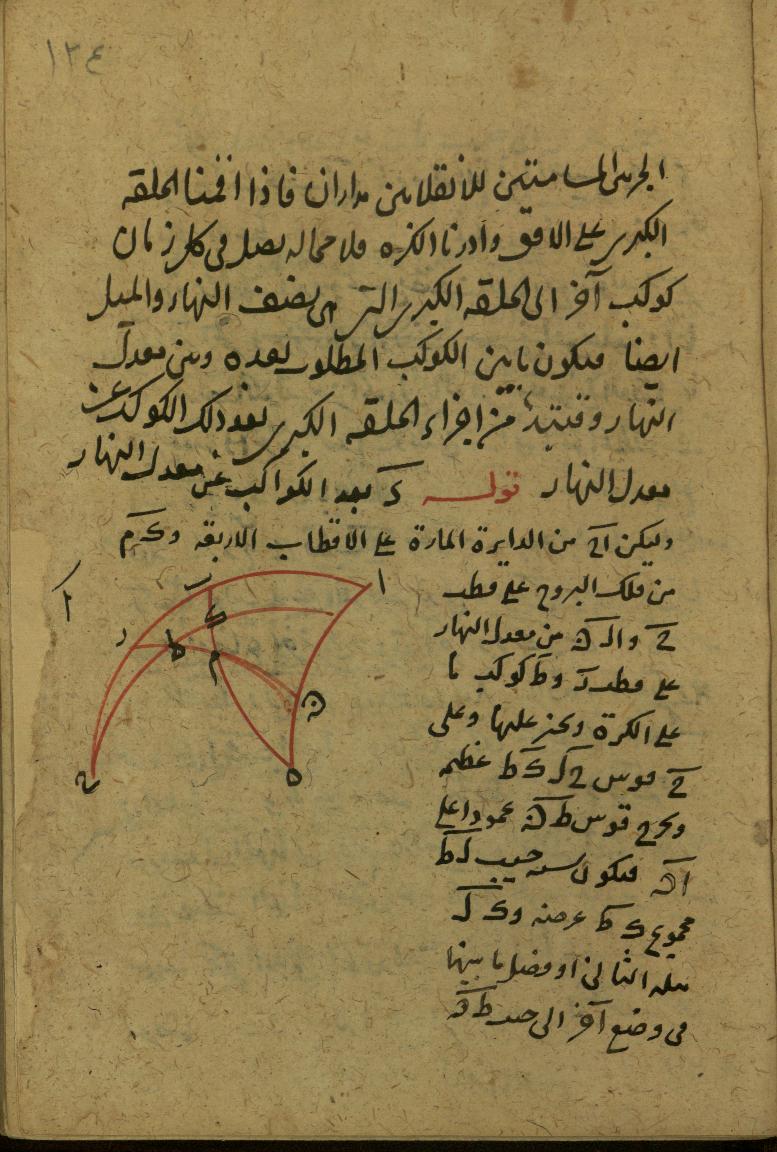 ١٢٤
الجرمين المسامتتين للانقلابين مداران فاذا اقمنا الحلقه
الكبرى على الافق وادرنا الكره فلا محاله يصل فى كل زمان
كوكب آخر الى الحلقه الكبرى التى هى نصف النهار والميل
ايضا فيكون مابين الكوكب المطلوب بعده وبين معدل
النهار وقتئذ من اجزاء الحلقه الكبرى بعد ذلك الكوكب عن
معدل النهار قوله بعد الكواكب عن معدل النهار
وليكن اَحَ من الدايرة المارة على الاقطاب الاربعه
من فلك البروج على قطب
من معدل النهار
على قطب وط كوكب ما
على الكرة ونجيز عليها وعلى
حَ قوس عظيمه
ونخرج قوس عمودا على
فيكون نسبه جيب
مجموع ك ط عرضه
ميله الثانى او فضل ما بينهما
فى وضع آخر الى جيب
ا
ب
ك
ط
م
ر
ح
ه